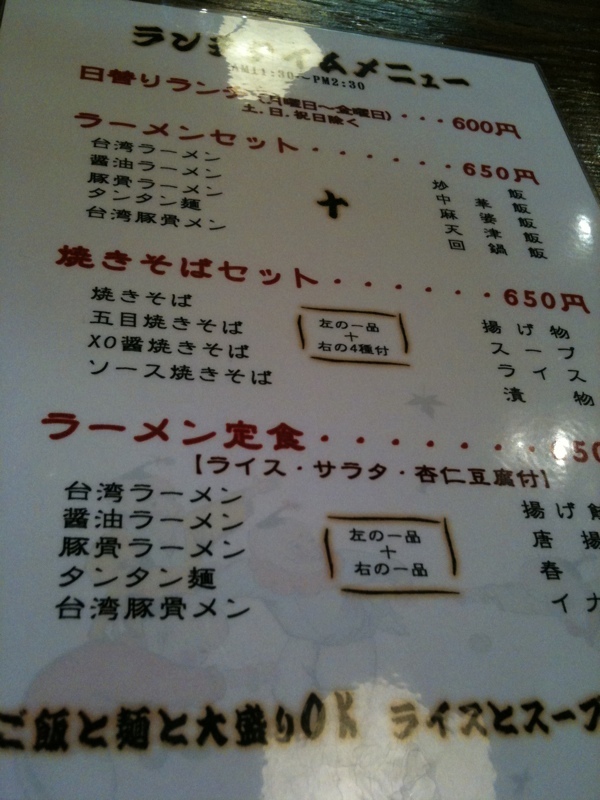 ランチタイムメニュー
AM11:30～PM2:30
日替りランチ(月曜日～金曜日)・・・600円
土.日.祝日除く
ラーメンセット・・・・・・650円
台湾ラーメン 炒飯
醤油ラーメン 中華飯
豚骨ラーメン 麻婆飯
タンタン麺 天津飯
台湾豚骨メン 回鍋飯
＋
焼きそばセット・・・・・・650円
焼きそば 揚げ物
五目焼きそば スープ
XO醤焼きそば ライス
ソース焼きそば 漬物
左の一品
＋
右の4種付
ラーメン定食・・・・・・・・650
【ライス・サラタ・杏仁豆腐付】
台湾ラーメン 揚げ
醤油ラーメン 唐揚
豚骨ラーメン 春
タンタン麺 イナ
台湾豚骨メン
左の一品
＋
右の一品
ご飯と麺と大盛りOK ライスとスープ